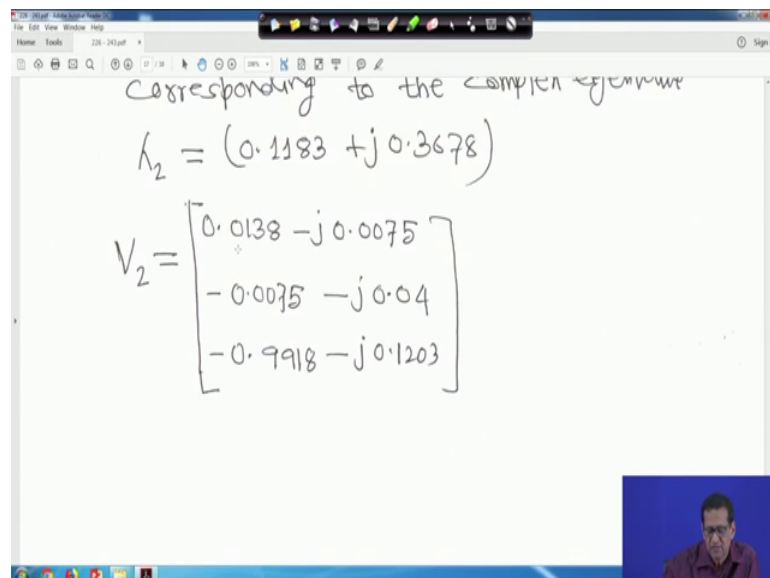 226 - 243.pdf - Adobe Acrobat Reader DC
File Edit View Window Help
Home Tools 226 - 243.pdf × Sign
17 / 18
Corresponding to the complex eigenvalue
λ2 = (0.1183 + j 0.3678)
V2 = [0.0138 - j 0.0075
- 0.0075 - j 0.04
- 0.9918 - j 0.1203]